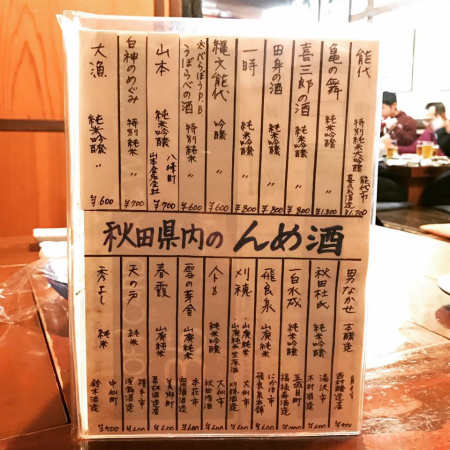 能代 特別純米吟醸 能代市 喜久水酒造 ¥1,700
亀の舞 純米吟醸 〃 ¥1,300
喜三郎の酒 純米 〃 ¥800
田舟の酒 純米吟醸 〃 ¥800
一時 純米 〃 ¥800
縄文能代 吟醸 〃 ¥600
うぼらべの酒 特別純米 〃 ¥700
山本 純米吟醸 八峰町 山本合名会社 ¥700
白神のめぐみ 特別純米 〃 ¥700
大漁 純米吟醸 〃 ¥600
秋田県内の んめ酒
男なかせ 本醸造
秋田杜氏 純米吟醸 湯沢市 木村酒造
一白水成 純米吟醸 五城目町 福禄寿酒造
飛良泉 山廃純米 にかほ市 飛良泉本舗
刈穂 山廃純米 大仙市 刈穂酒造
純米吟醸 大仙市 秋田清酒 ¥600
雪の芽舎 山廃純米 由利本荘市 齋彌酒造
春霞 純米 美郷町 栗林酒造
天の戸 純米 横手市 浅舞酒造
秀よし 純米 中仙町 鈴木酒造 ¥500